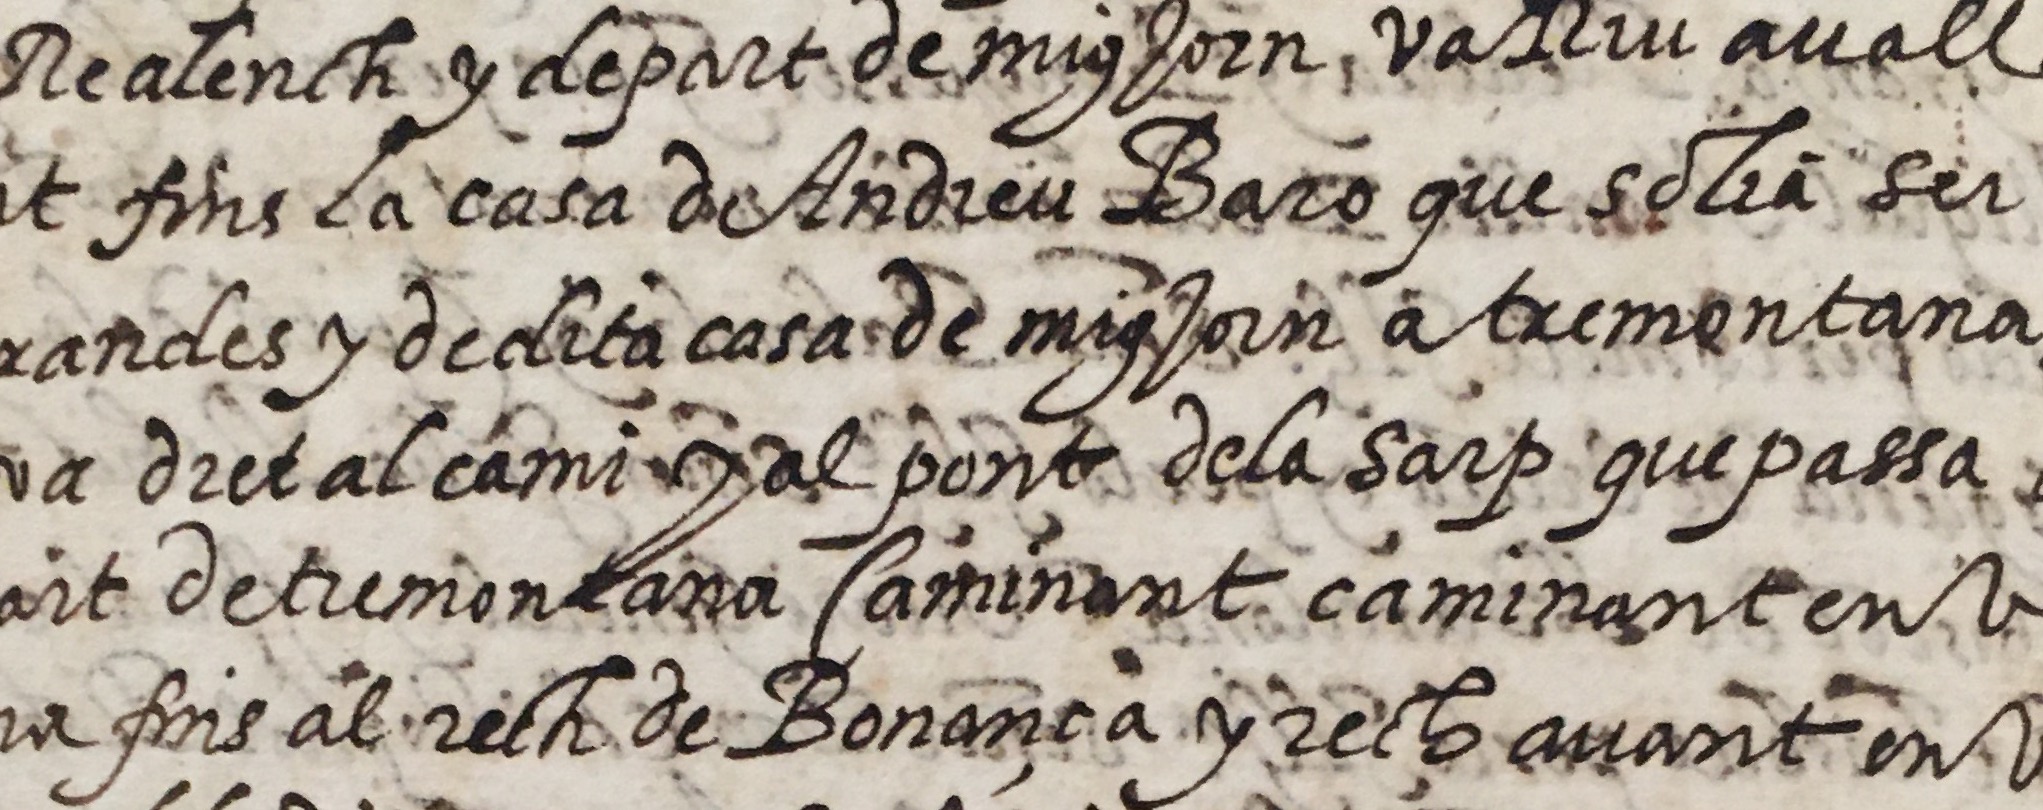 Realench y depart de migJorn, va Riu auall
fins la casa de Andreu Baro que solia ser
randes y dedita casa de migJorn a tremontana
va dret al cami y al pont dela Sarp que passa
art de tremontana Caminant caminant en V
fins al rech de Bonança y rech auant en V